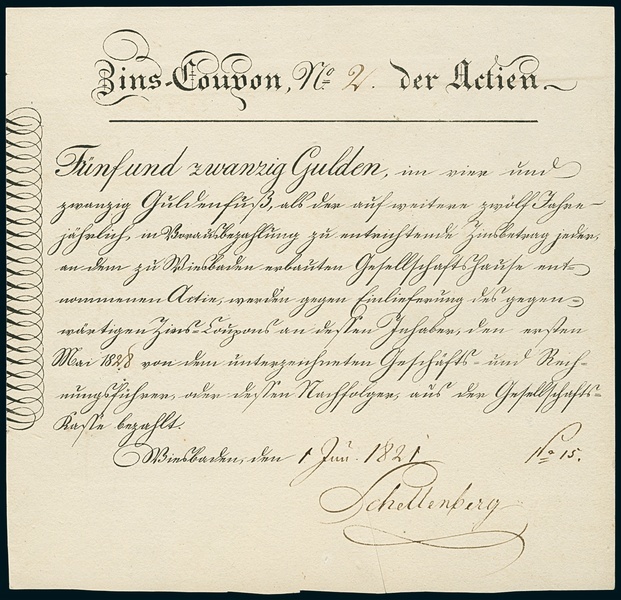 Zins-Coupon, No. 2. der Actien.
Fünf und zwanzig Gulden, im vier und
zwanzig Guldenfuß als der auf weitere zwölf Jahre
jährlich, in Vorausbezahlung zu entrichtende Zinsbetrag jeder,
an dem zu Wiesbaden erbauten Gesellschaftshause ent-
nommenen Actie, werden gegen Einlieferung des gegen-
wärtigen Zins-Coupons an dessen Inhaber, den ersten
Mai 1828 von dem unterzeichneten Geschäfts- und Rech-
nungsführer, oder dessen Nachfolger, aus der Gesellschafts-
Kasse bezahlt.
Wiesbaden, den 1 Jun. 1821 No 15.
Schellenberg